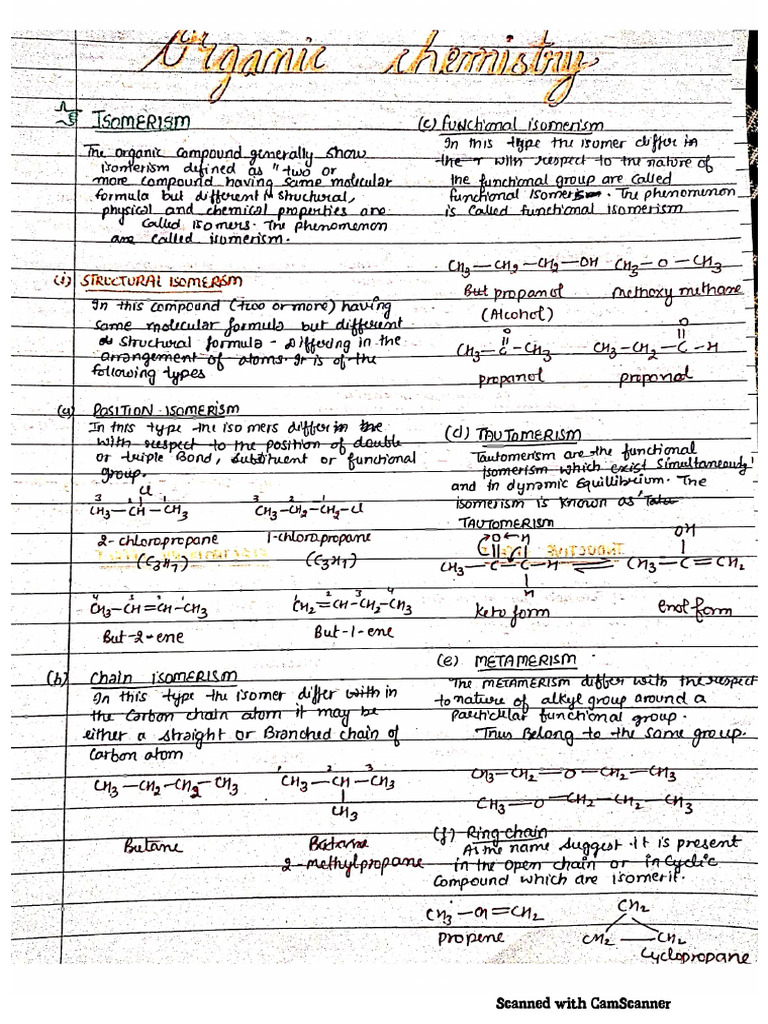 Organic chemistry
ISOMERISM
The organic compound generally show
isomerism defined as "two or
more compound having same molecular
formula but different in structural,
physical and chemical properties are
called isomers. The phenomenon
are called isomerism.
(i) STRUCTURAL ISOMERISM
In this compound (two or more) having
same molecular formula but different
structural formula - Differing in the
arrangement of atoms. It is of the
following types
(a) POSITION ISOMERISM
In this type the isomers differ in the
with respect to the position of double
or triple Bond, substituent or functional
group.
Cl
3 2 1
CH3-CH-CH3
3 2 1
CH3-CH2-CH2-Cl
2-chloropropane 1-chloropropane
(C3H7) (C3H7)
4 3 2 1
CH3-CH=CH-CH3
1 2 3 4
CH2=CH-CH2-CH3
But-2-ene But-1-ene
(b) Chain isomerism
In this type the isomer differ with in
the carbon chain atom it may be
either a straight or Branched chain of
carbon atom
CH3-CH2-CH2-CH3
1 2 3
CH3-CH-CH3
CH3
Butane
2-methylpropane
(c) functional isomerism
In this type the isomer differ in
the r with respect to the nature of
the functional group are called
functional isomers. The phenomenon
is called functional isomerism
CH3-CH2-CH2-OH CH3-O-CH3
But propanol methoxy methane
(Alcohol)
O O
CH3-C-CH3 CH3-CH2-C-H
propanol propanal
(d) TAUTOMERISM
Tautomerism are the functional
isomerism which exist simultaneously
and in dynamic Equillibrium. The
isomerism is known as
TAUTOMERISM
O H OH
CH3-C-C-H ⇌ CH3-C=CH2
H
Keto form enol form
(e) METAMERISM
The METAMERISM differ with the respect
to nature of alkyl group around a
particular functional group.
Thus Belong to the same group.
CH3-CH2-O-CH2-CH3
CH3-O-CH2-CH2-CH3
(f) Ring chain
As the name suggest it is present
in the open chain or in cyclic
compound which are isomeric.
CH3-CH=CH2
propene
CH2
CH2-CH2
Cyclopropane
Scanned with CamScanner